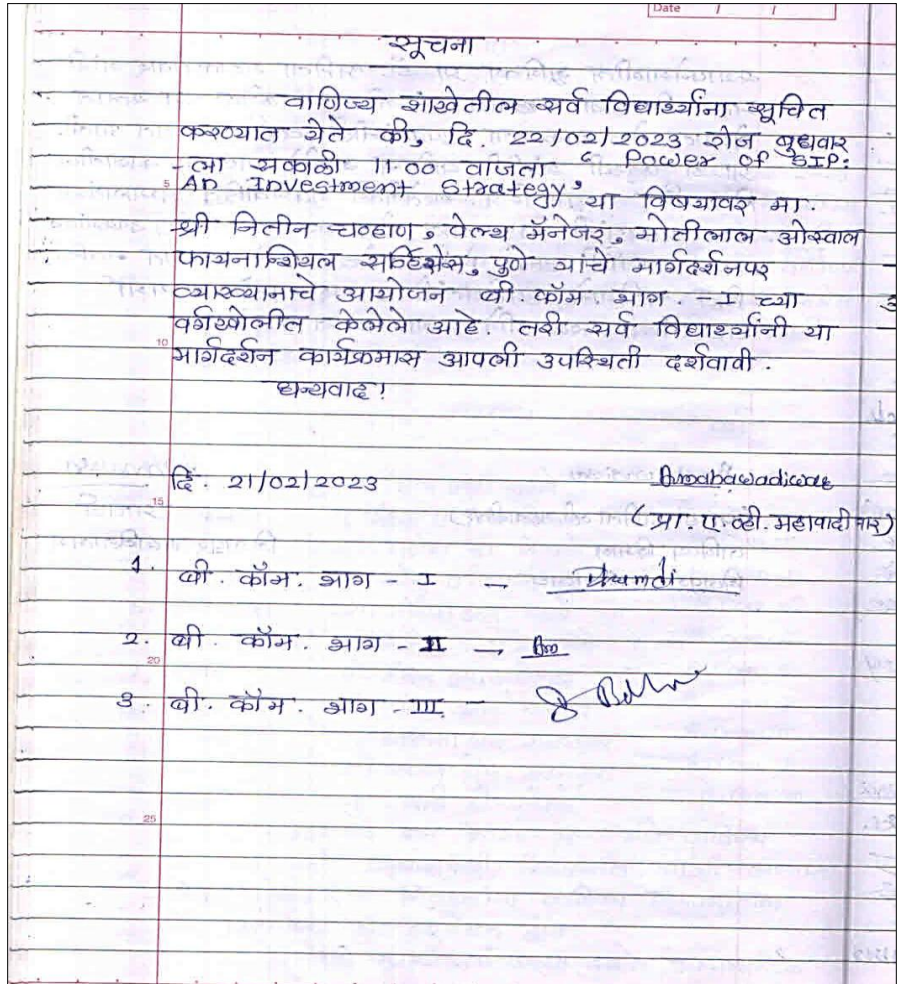 Date / /
सूचना
वाणिज्य शाखेतील सर्व विद्यार्थ्यांना सूचित
करण्यात येते की, दि. 22/02/2023 रोज बुधवार
-ला सकाळी 11.00 वाजता "Power of SIP:
5
An Investment Strategy" या विषयावर मा.
श्री नितीन चव्हाण, वेल्थ मॅनेजर, मोतीलाल ओस्वाल
फायनान्शियल सर्व्हिसेस, पुणे यांचे मार्गदर्शनपर
व्याख्यानाचे आयोजन बी कॉम भाग - I च्या
वर्गखोलीत केलेले आहे. तरी सर्व विद्यार्थ्यांनी या
10
मार्गदर्शन कार्यक्रमास आपली उपस्थिती दर्शवावी.
धन्यवाद!
दि. 21/02/2023
15
(प्रा. ए. व्ही. महावादीवार)
1. बी. कॉम. भाग - I -
2. बी. कॉम. भाग - II -
20
3. बी. कॉम. भाग - III -
25